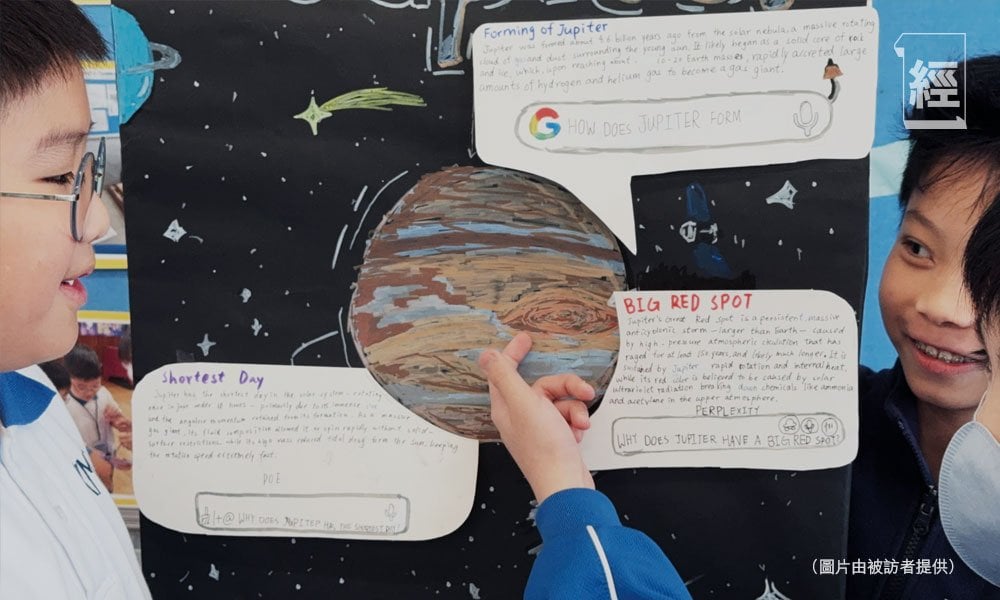 Forming of Jupiter
Jupiter was formed about 4.6 billion years ago from the solar nebula, a massive rotating
cloud of gas and dust surrounding the young sun. It likely began as a solid core of rock
and ice, which, upon reaching about 10-20 Earth masses, rapidly accreted large
amounts of hydrogen and helium gas to become a gas giant.
HOW DOES JUPITER FORM
經
BIG RED SPOT
Jupiter's Great Red Spot is a persistent, massive
anticyclonic storm — larger than Earth — caused
by high-pressure atmospheric circulation that has
raged for at least 150 years, and likely much longer. It is
sustained by Jupiter rapid rotation and internal heat,
while its red color is believed to be caused by solar
ultraviolet radiation breaking down chemicals like ammonia
and acetylene in the upper atmosphere.
PERPLEXITY
WHY DOES JUPITER HAVE A BIG RED SPOT?
Shortest Day
Jupiter has the shortest day in the solar system — rotating
once in just under 10 hours — primarily due to its immense size
and the angular momentum retained from its formation. As a massive
gas giant, its fluid composition allowed it to spin rapidly without solid-
surface restrictions, while its high mass reduced tidal drag from the Sun, keeping
the rotation speed extremely fast.
POE
+@ WHY DOES JUPITER HAS THE SHORTEST DAY
（圖片由被訪者提供）